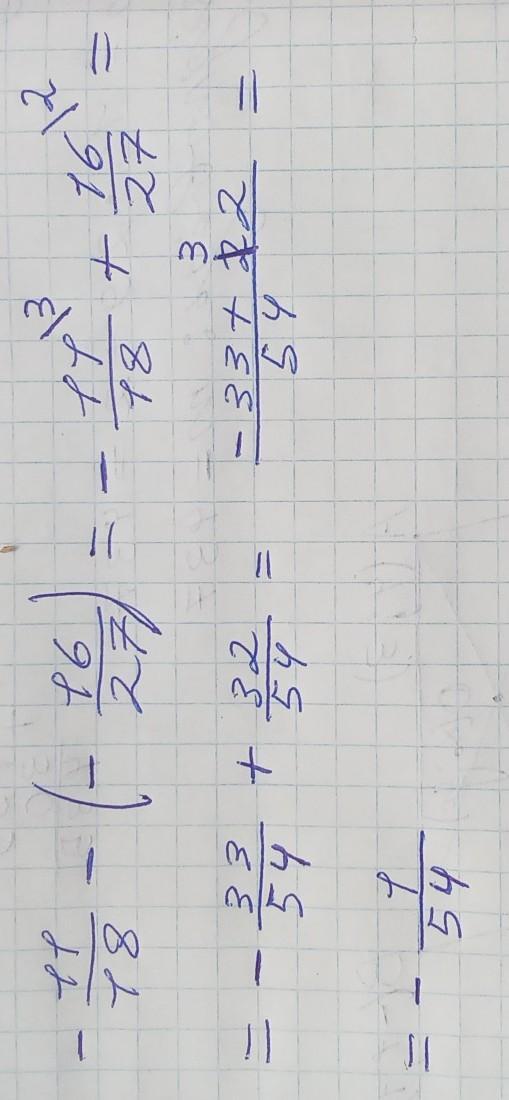 - 11/18 - (- 16/27) = - 11/18 \3 + 16/27 \2 =
= - 33/54 + 32/54 = (-33 + 32)/54 =
= - 1/54